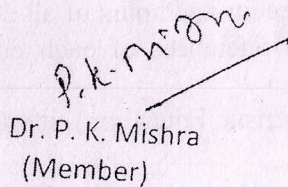 P.K. Mishra
Dr. P. K. Mishra
(Member)